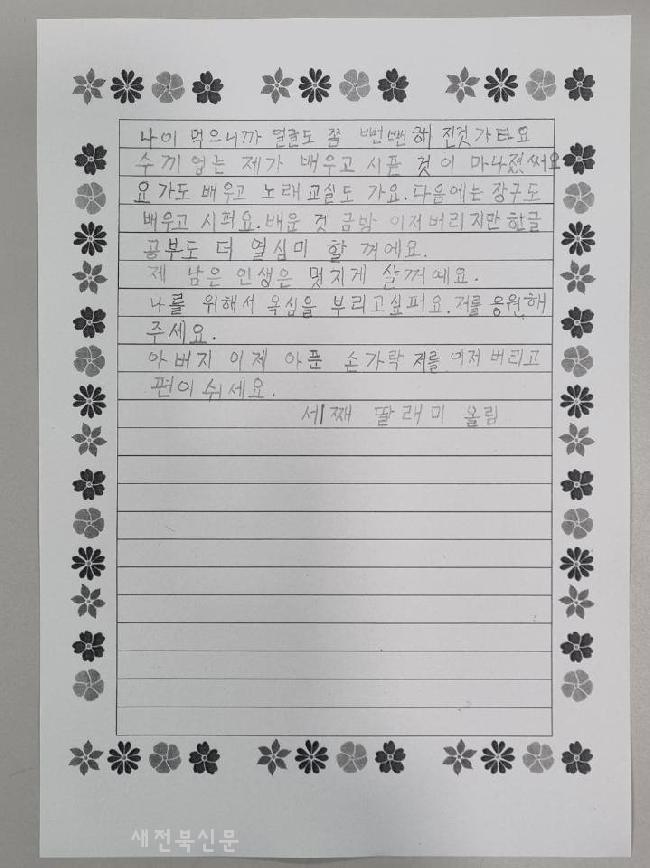 나이 먹으니까 얼굴도 쫌 뻔뻔해 진것 가타요
수끼 업는 제가 배우고 시픈 것이 마나졌써요
요가도 배우고 노래교실도 가요. 다음에는 장구도
배우고 시퍼요. 배운 것 금방 이저버리지만 한글
공부도 더 열심미 할 꺼에요.
제 남은 인생은 멋지게 살꺼예요.
나를 위해서 욕심을 부리고싶퍼요. 저를 응원해
주세요.
아버지 이제 아푼 손가락 저를 이저버리고
편이 쉬세요.
세째 딸래미 올림
새전북신문